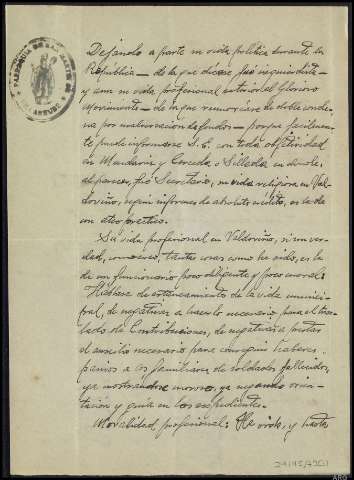 PARROQUIA DE SAN MARTIN DE
Dejando a parte su vida política durante la
República — de la que dícese fué izquierdista —
y aun su vida profesional anterior al glorioso
Movimiento — de la que rumoréase de doble condena
por malversación de fondos — porque facilmente
puede informarse S. E. con toda objetividad
en Mondariz y Cerceda o Silleda, en donde,
al parecer, fué Secretario, su vida religiosa en Valdoviño,
según informes de absoluto crédito, es la de
un ateo práctico.
Su vida profesional en Valdoviño, si son verdad,
como creo, tantas cosas como he oído, es la
de un funcionario poco diligente y poco moral:
Háblase de estancamiento de la vida municipal,
de negativas a hacer lo necesario para el traslado
de Contribuciones, de negativas a prestar
el auxilio necesario para conseguir haberes
pasivos a los familiares de soldados fallecidos,
ya mostrándose moroso, ya negando orientación
y guía en los expedientes.
Moralidad profesional: He oído, y hasta
24145/7951